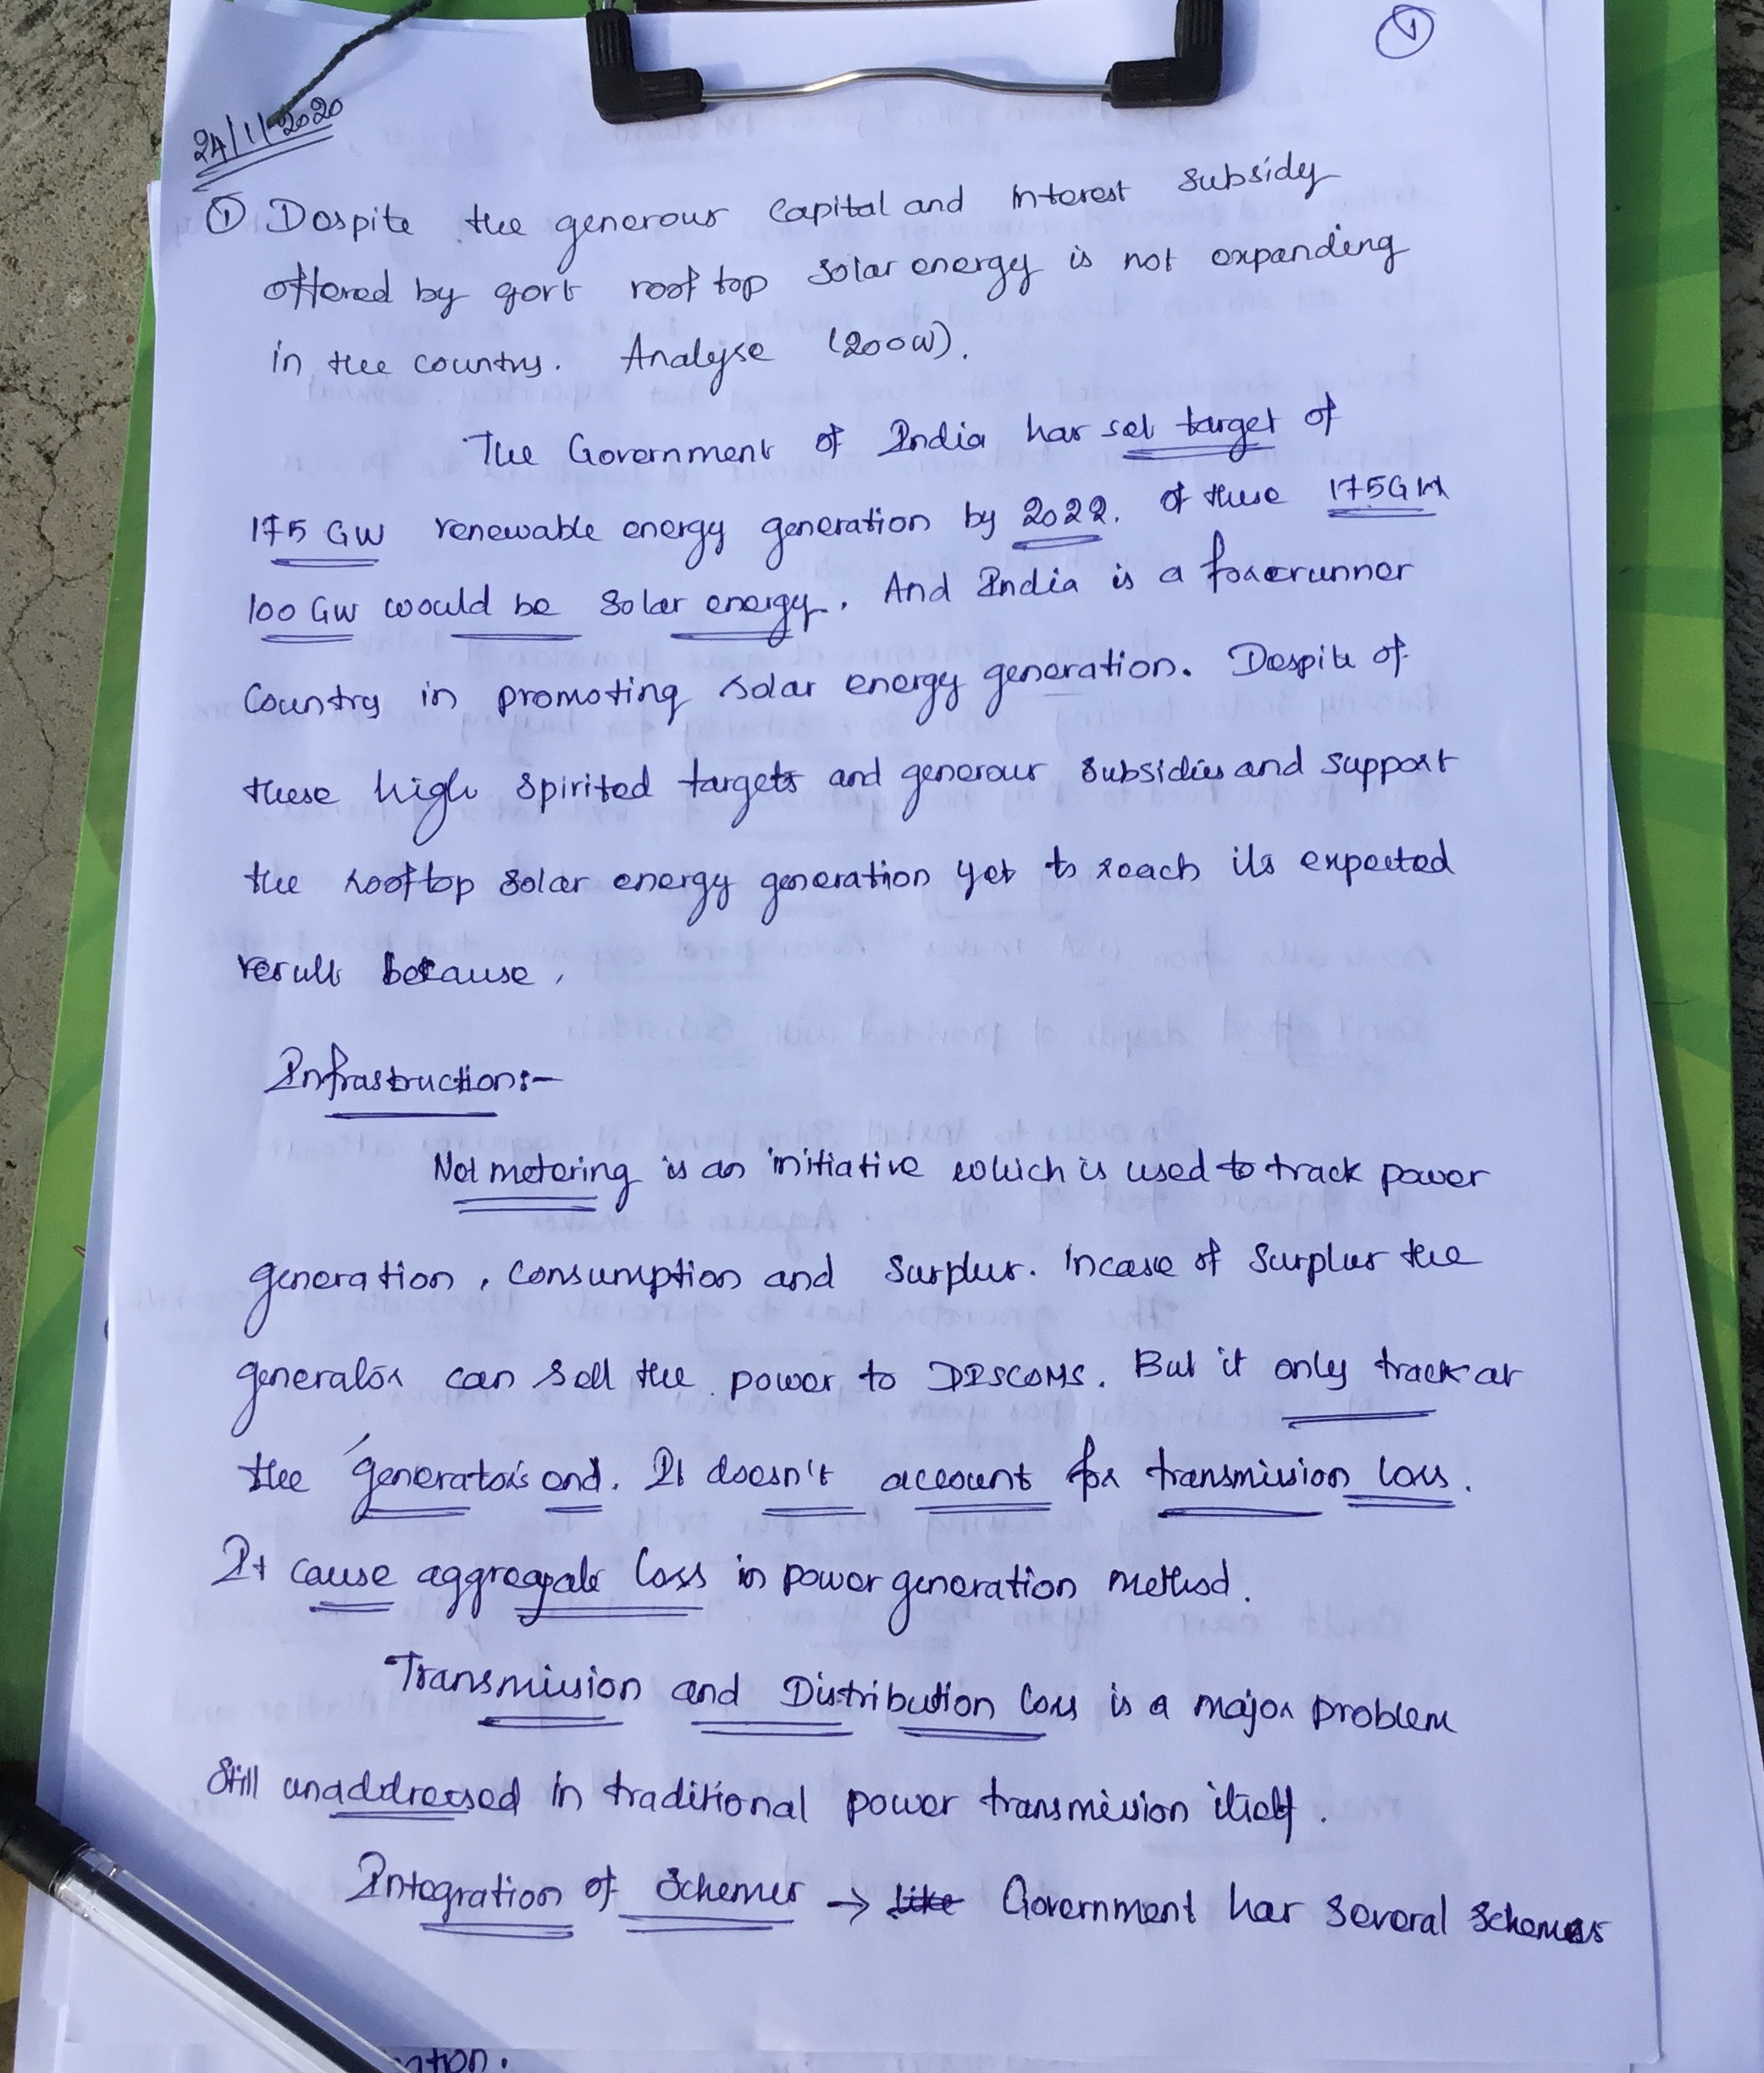 1
24/11/2020
① Despite the generous capital and interest subsidy
offered by govt roof top solar energy is not expanding
in the country. Analyse (200W).
The Government of India has set target of
175 GW renewable energy generation by 2022. Of these 175GW
100 GW would be solar energy. And India is a forerunner
Country in promoting solar energy generation. Despite of
these high spirited targets and generous subsidies and support
the rooftop solar energy generation yet to reach its expected
result because,
Infrastruction:-
Net metering is an initiative which is used to track power
generation, consumption and surplus. Incase of surplus the
generator can sell the power to DISCOMS. But it only track at
the generator's end. It doesn't account for transmission loss.
It cause aggregate loss in power generation method.
Transmission and Distribution loss is a major problem
still unaddressed in traditional power transmission itself.
Integration of Schemes → like Government has several schemes
ation.